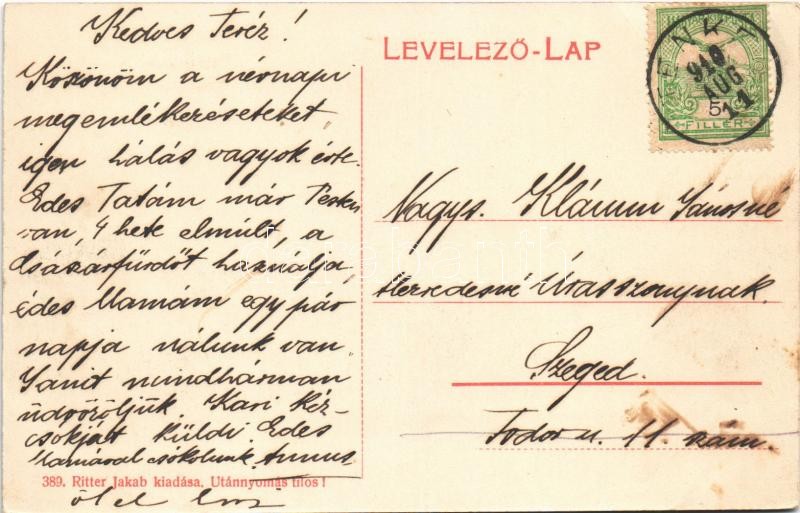 Kedves Teréz!
Köszönöm a névnapi
megemlékezéseteket
igen hálás vagyok érte.
Edes Tatám már Pesten
van, 4 hete elmúlt, a
Császárfürdőt használja,
édes Mamám egy pár
napja nálunk van.
mindhárman
üdvözöljük. Kari kéz-
csókját küldi. Edes
Mamával csókolunk. Annus
ölel
389. Ritter Jakab kiadása. Utánnyomás tilos!
LEVELEZŐ-LAP
910
AUG
11
5
FILLÉR
Nagys. Klámm Jánosné
Úrasszonynak.
Szeged.
Fodor u. 11. szám.